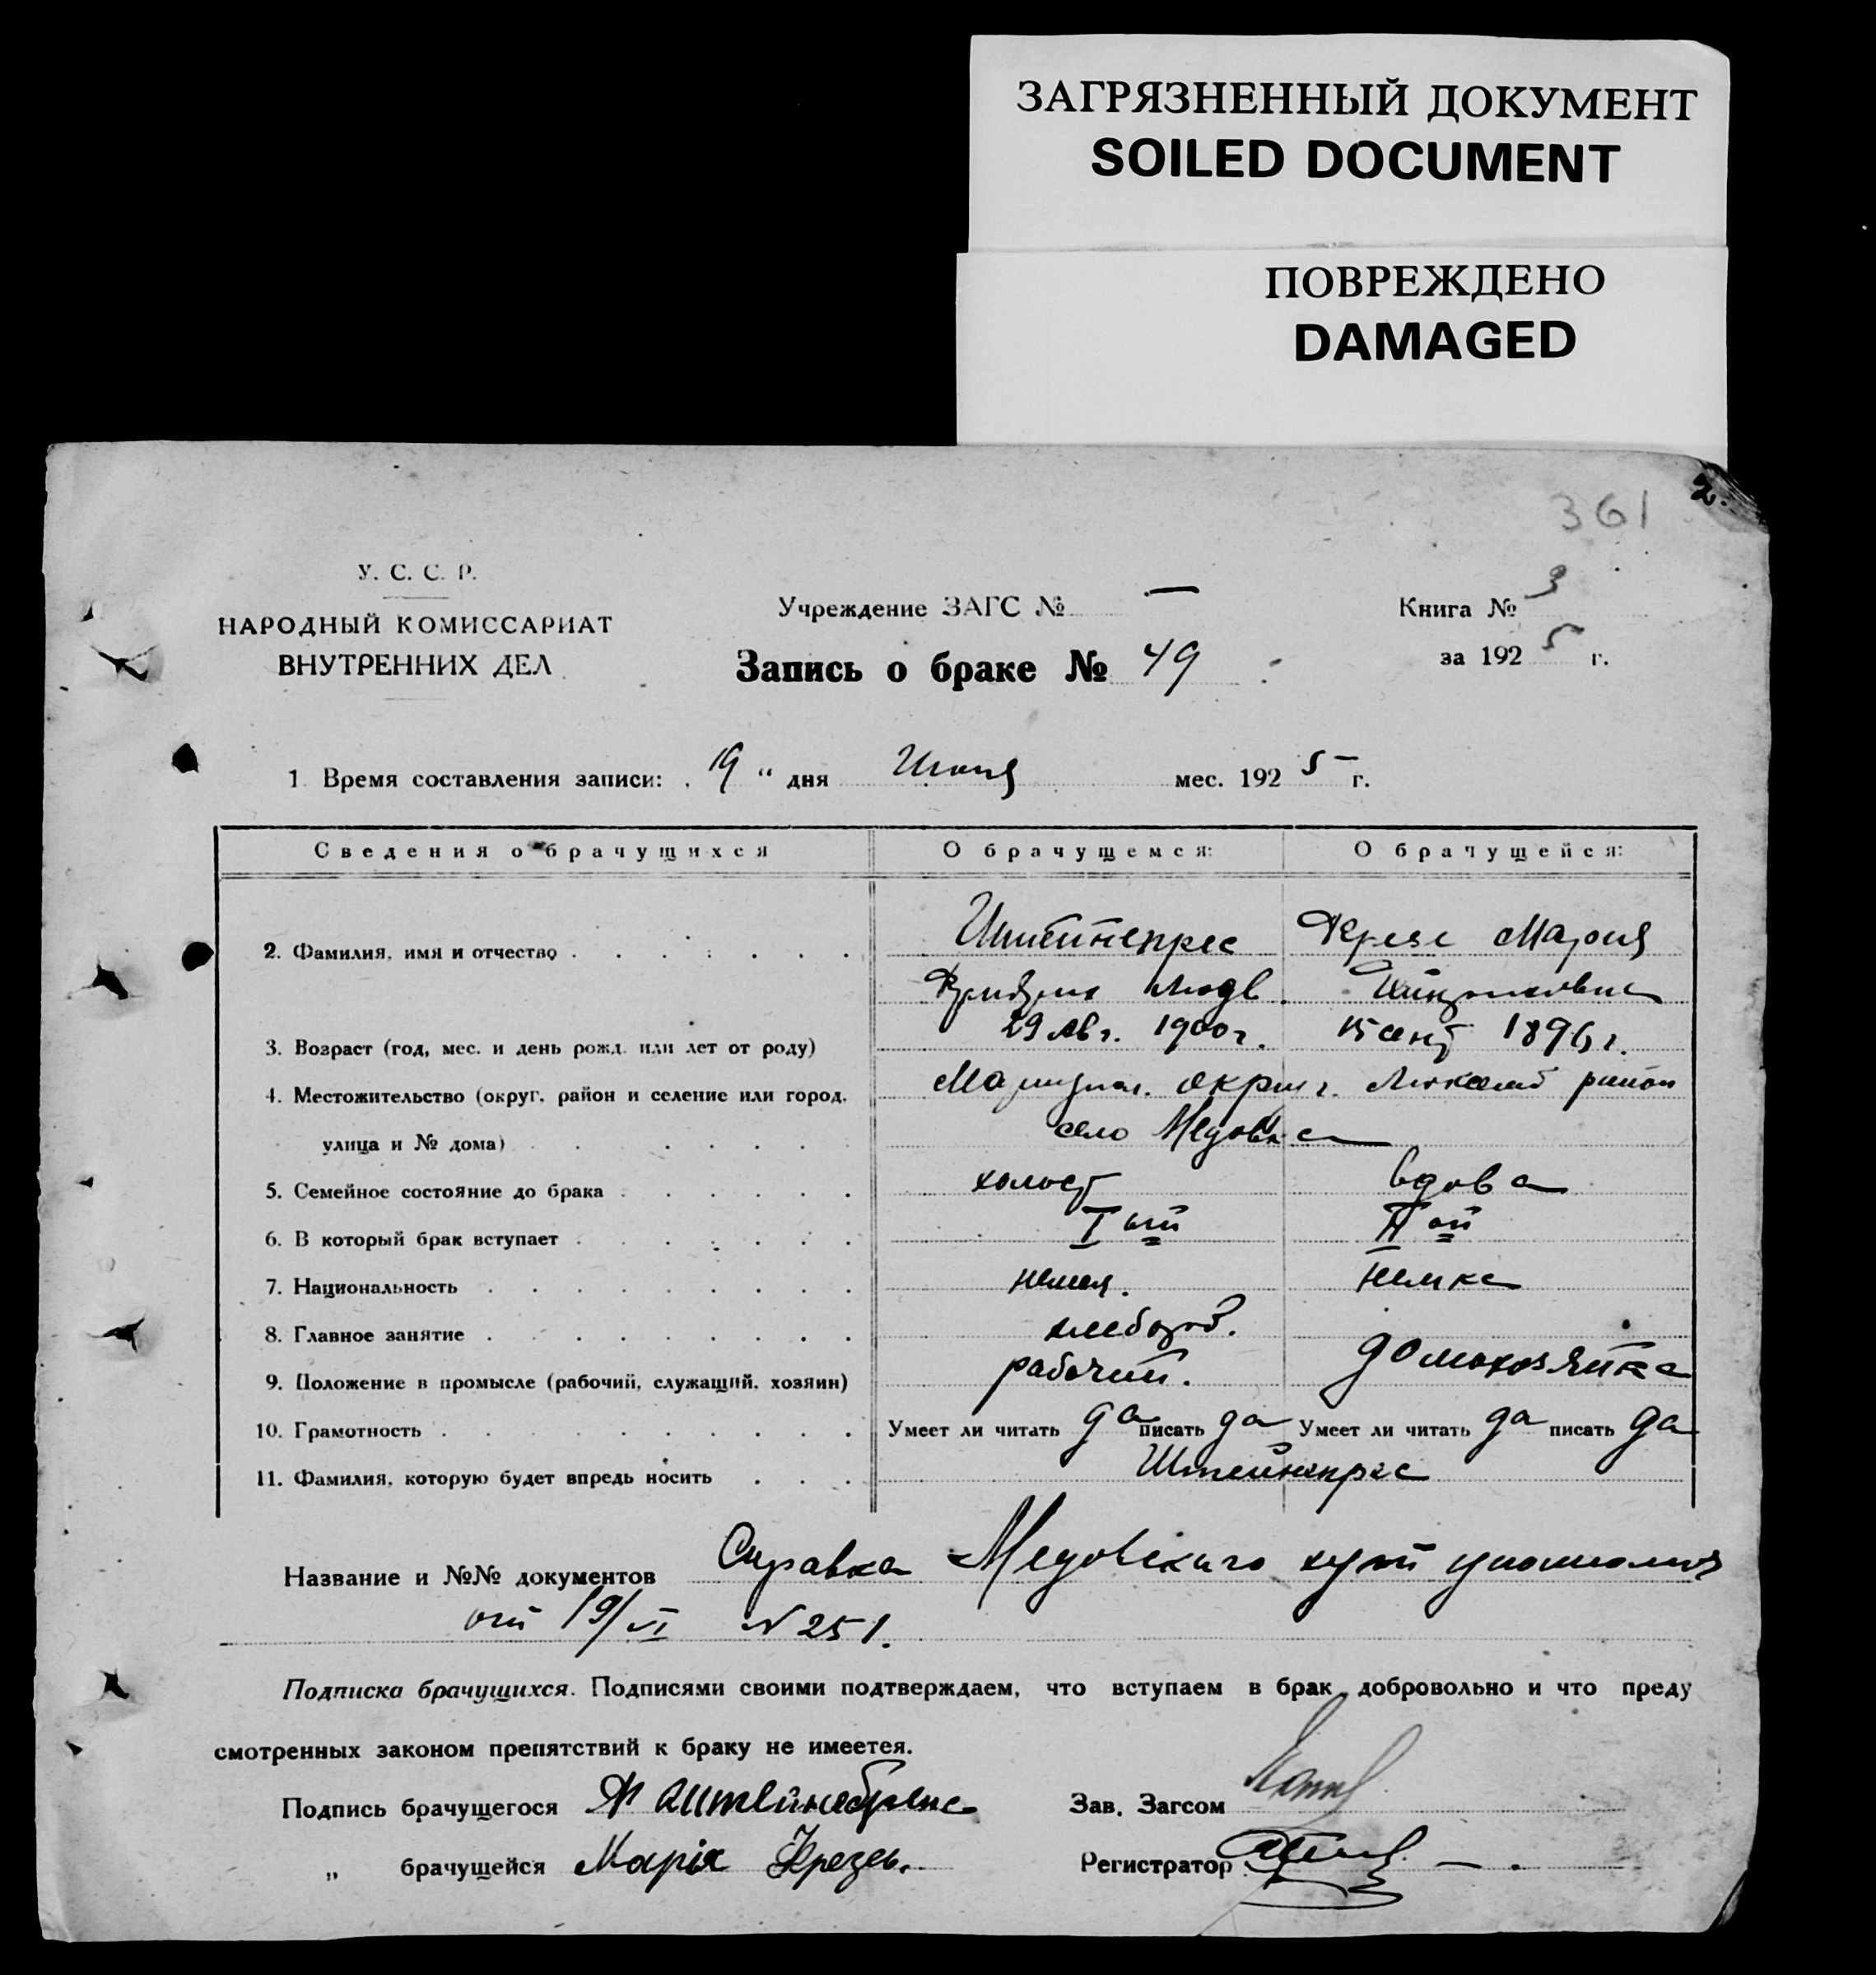 ЗАГРЯЗНЕННЫЙ ДОКУМЕНТ
SOILED DOCUMENT
ПОВРЕЖДЕНО
DAMAGED
2.
361
У. С. С. Р.
НАРОДНЫЙ КОМИССАРИАТ
ВНУТРЕННИХ ДЕЛ
Учреждение ЗАГС № —
Запись о браке № 49
Книга № 3
за 1925 г.
1. Время составления записи: 19 " дня Июня мес. 1925 г.
Сведения о брачущихся О брачущемся: О брачущейся:
2. Фамилия, имя и отчество Штейнепрес Крезе Мария
Фридрих Людв.
3. Возраст (год, мес. и день рожд. или лет от роду) 29 Авг. 1900 г. 15 сент 1896 г.
4. Местожительство (округ, район и селение или город, Мариупол. округ. район
улица и № дома) село
5. Семейное состояние до брака холост вдова
6. В который брак вступает I ый II ой
7. Национальность немец. немка
8. Главное занятие хлебороб.
9. Положение в промысле (рабочий, служащий, хозяин) рабочий. домохозяйка
10. Грамотность Умеет ли читать да писать да Умеет ли читать да писать да
11. Фамилия, которую будет впредь носить Штейнепрес
Название и №№ документов Справка Медовского
от 19/VI N 251.
Подписка брачущихся. Подписями своими подтверждаем, что вступаем в брак добровольно и что преду
смотренных законом препятствий к браку не имеется.
Подпись брачущегося Зав. Загсом
„ брачущейся Марія Крезе. Регистратор